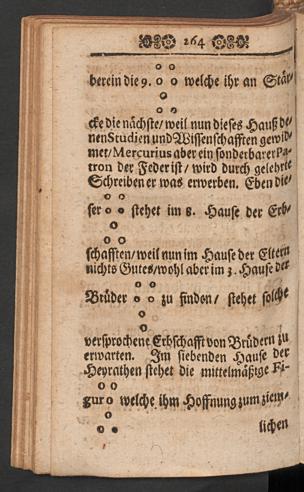 264
berein die 9. welche ihr an Stär-
cke die nächste/ weil nun dieses Hauß de-
nen Studien und Wissenschafften gewid-
met/ Mercurius aber ein sonderbarer Pa-
tron der Feder ist/ wird durch gelehrte
Schreiben er was erwerben. Eben die-
ser stehet im 8. Hause der Erb-
schafften/ weil nun im Hause der Eltern
nichts Gutes/ wohl aber im 3. Hause der
Brüder zu finden/ stehet solche
versprochene Erbschafft von Brüdern zu
erwarten. Im siebenden Hause der
Heyrathen stehet die mittelmäßige Fi-
gur welche ihm Hoffnung zum ziem-
lichen